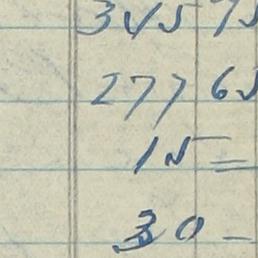 345 75
277 65
15 =
30 -